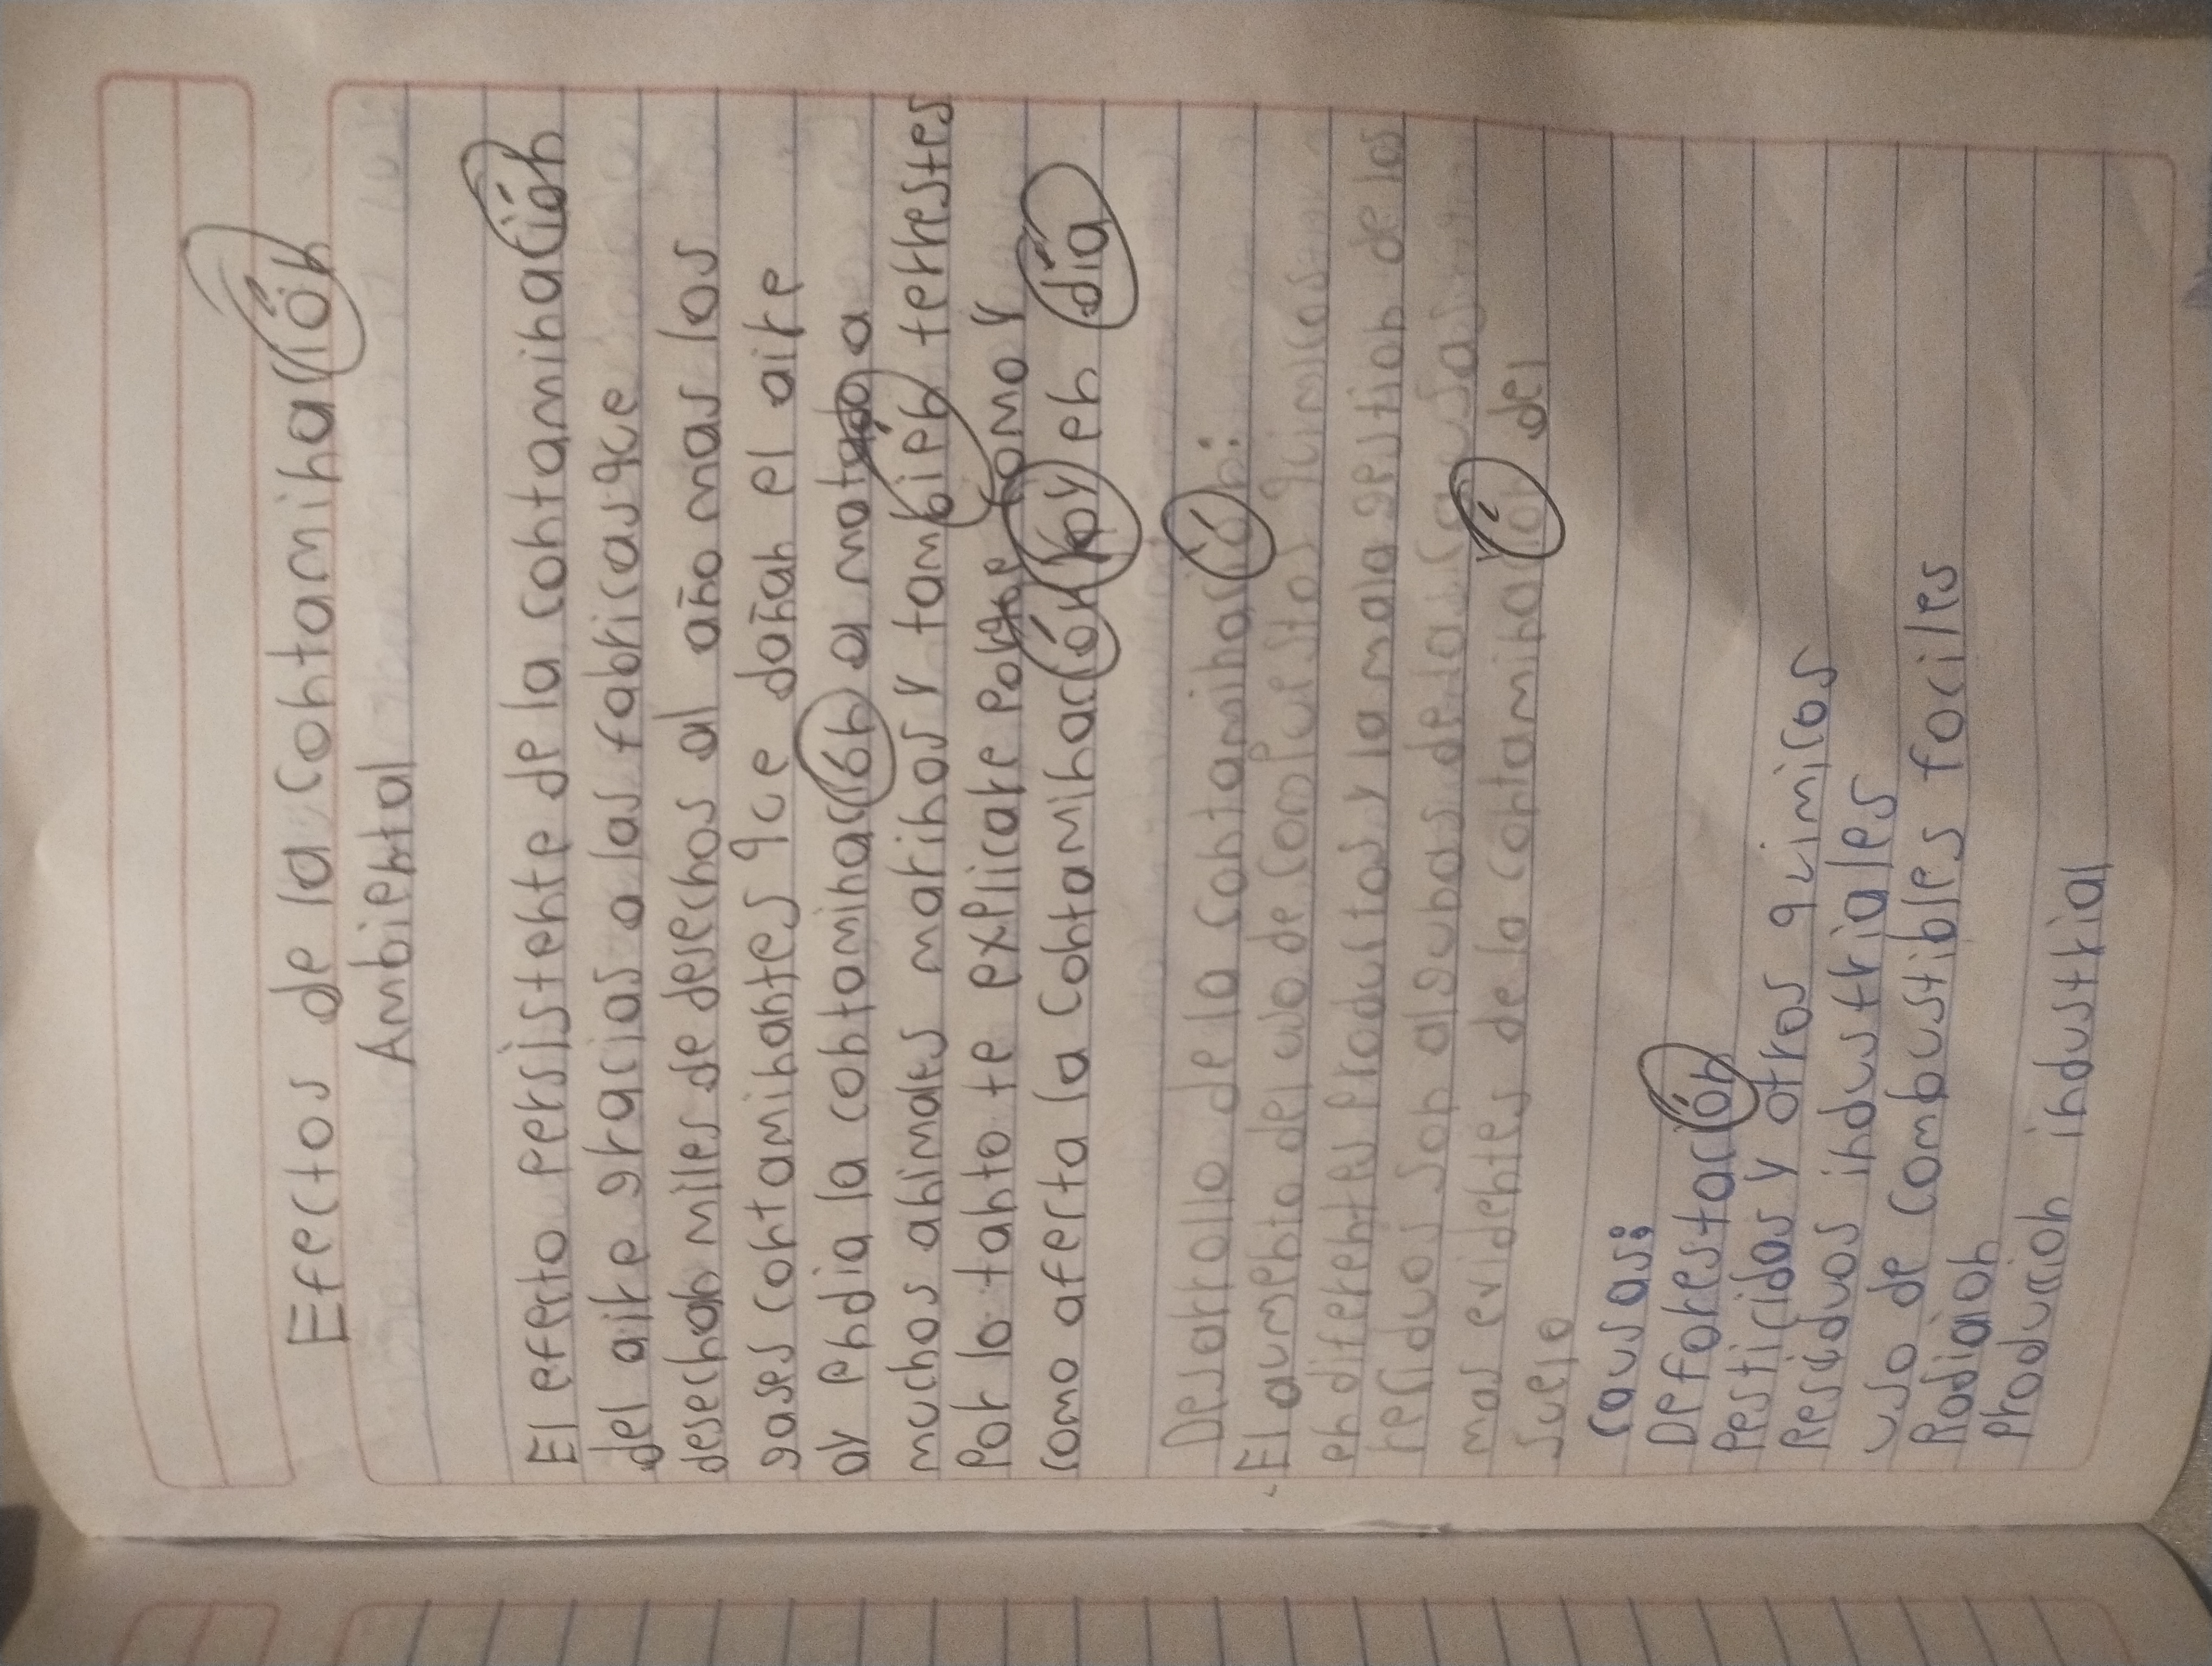 Efectos de la contaminación
Ambiental
El efecto persistente de la contaminación
del aire gracias a las fabricas que
desechan milles de desechos al año mas los
gases contaminantes que dañan el aire
oy endia la contaminación a matado a
muchos animales marinos y tambien terrestes
Por lo tanto te explicare como y
como afecta la contaminación hoy en día
Desarrollo de la contaminació n:
El aumento del uso de compuestos quimicos
en diferentes productos y la mala gestion de los
residuos son algunas de las causas
mas evidentes de la contaminación del
suelo
causas:
Deforestación
Pesticidas y otros quimicos
Residuos industriales
uso de combustibles fociles
Radiaion
Producción industrial